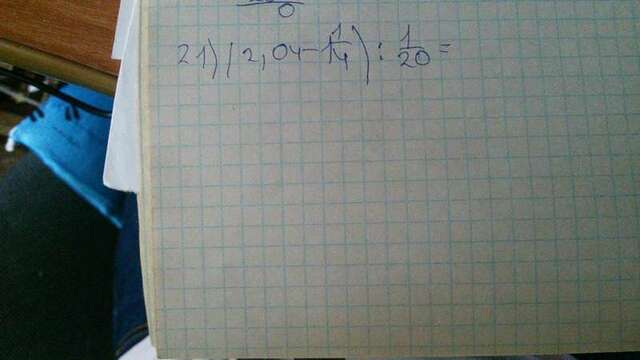 21) (2,04 - 1/4) : 1/20 =